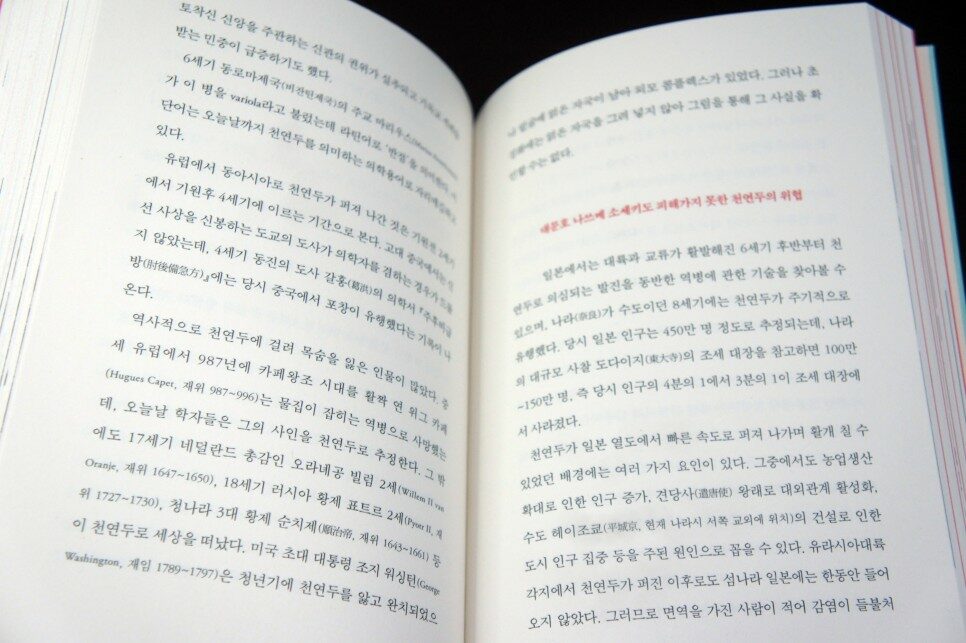 토착신 신앙을 주관하는 신관의 권위가
받는 민중이 급증하기도 했다.
6세기 동로마제국(비잔틴제국)의 주교 마리우스
가 이 병을 variola라고 불렀는데 라틴어로 '반점'을
단어는 오늘날까지 천연두를 의미하는 의학용어로
있다.
유럽에서 동아시아로 천연두가 퍼져 나간 것은 기원전 2세기
에서 기원후 4세기에 이르는 기간으로 본다. 고대 중국에서는 신
선 사상을 신봉하는 도교의 도사가 의학자를 겸하는 경우가 드물
지 않았는데, 4세기 동진의 도사 갈홍(葛洪)의 의학서 『주후비급
방(肘後備急方)』에는 당시 중국에서 포창이 유행했다는 기록이 나
온다.
역사적으로 천연두에 걸려 목숨을 잃은 인물이 많았다. 중
세 유럽에서 987년에 카페왕조 시대를 활짝 연 위그 카페
(Hugues Capet, 재위 987~996)는 물집이 잡히는 역병으로 사망했는
데, 오늘날 학자들은 그의 사인을 천연두로 추정한다. 그 밖
에도 17세기 네덜란드 총감인 오라네공 빌럼 2세(Willem II van
Oranje, 재위 1647~1650), 18세기 러시아 황제 표트르 2세(Pyotr II, 재
위 1727~1730), 청나라 3대 황제 순치제(順治帝, 재위 1643~1661) 등
이 천연두로 세상을 떠났다. 미국 초대 대통령 조지 워싱턴(George
Washington, 재임 1789~1797)은 청년기에 천연두를 앓고 완치되었으
나 얼굴에 얽은 자국이 남아 외모 콤플렉스가 있었다. 그러나 초
상화에는 얽은 자국을 그려 넣지 않아 그림을 통해 그 사실을 확
인할 수는 없다.
대문호 나쓰메 소세키도 피해가지 못한 천연두의 위협
일본에서는 대륙과 교류가 활발해진 6세기 후반부터 천
연두로 의심되는 발진을 동반한 역병에 관한 기술을 찾아볼 수
있으며, 나라(奈良)가 수도이던 8세기에는 천연두가 주기적으로
유행했다. 당시 일본 인구는 450만 명 정도로 추정되는데, 나라
의 대규모 사찰 도다이지(東大寺)의 조세 대장을 참고하면 100만
~150만 명, 즉 당시 인구의 4분의 1에서 3분의 1이 조세 대장에
서 사라졌다.
천연두가 일본 열도에서 빠른 속도로 퍼져 나가며 활개 칠 수
있었던 배경에는 여러 가지 요인이 있다. 그중에서도 농업생산
확대로 인한 인구 증가, 견당사(遣唐使) 왕래로 대외관계 활성화,
수도 헤이조쿄(平城京, 현재 나라시 서쪽 교외에 위치)의 건설로 인한
도시 인구 집중 등을 주된 원인으로 꼽을 수 있다. 유라시아대륙
각지에서 천연두가 퍼진 이후로도 섬나라 일본에는 한동안 들어
오지 않았다. 그러므로 면역을 가진 사람이 적어 감염이 들불처